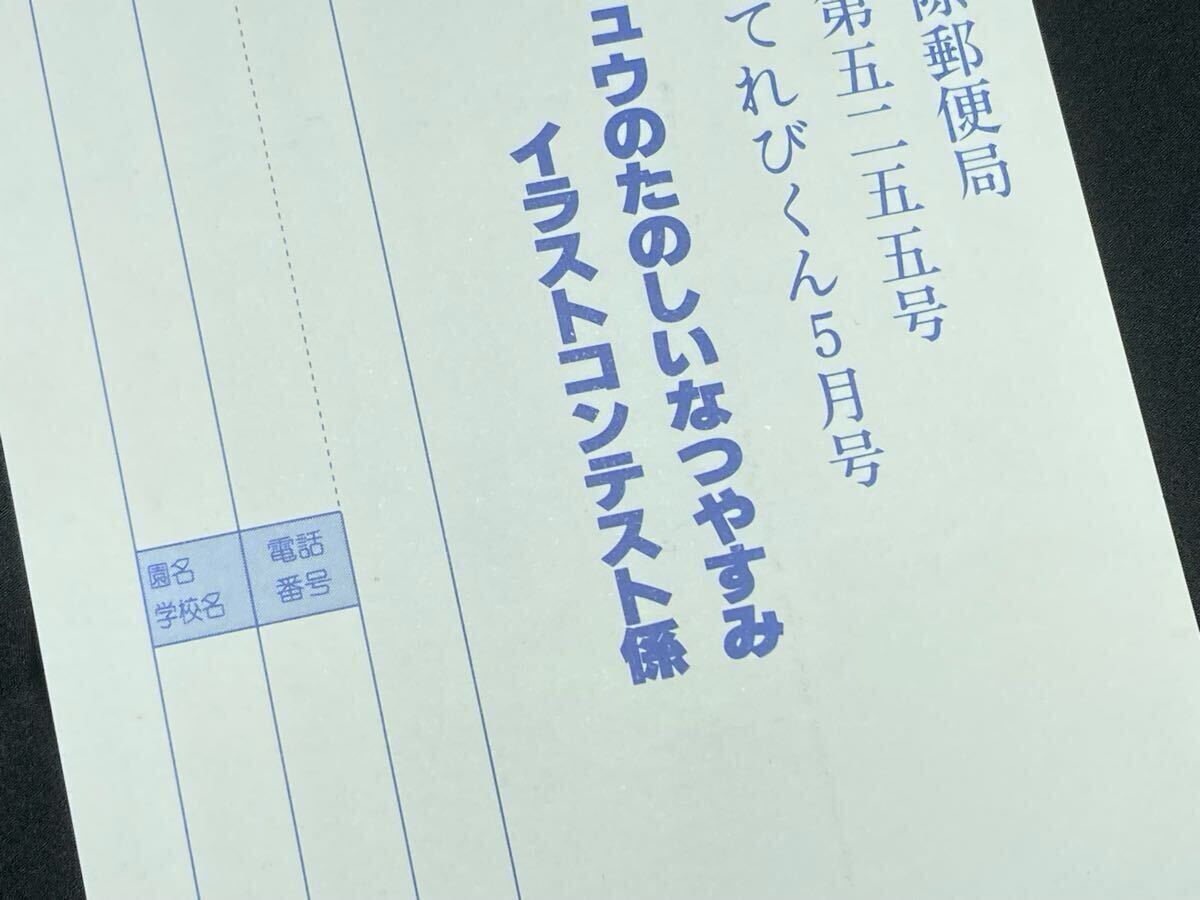 際郵便局
第五二五五号
てれびくん5月号
ュウのたのしいなつやすみ
イラストコンテスト係
電話
番号
園名
学校名